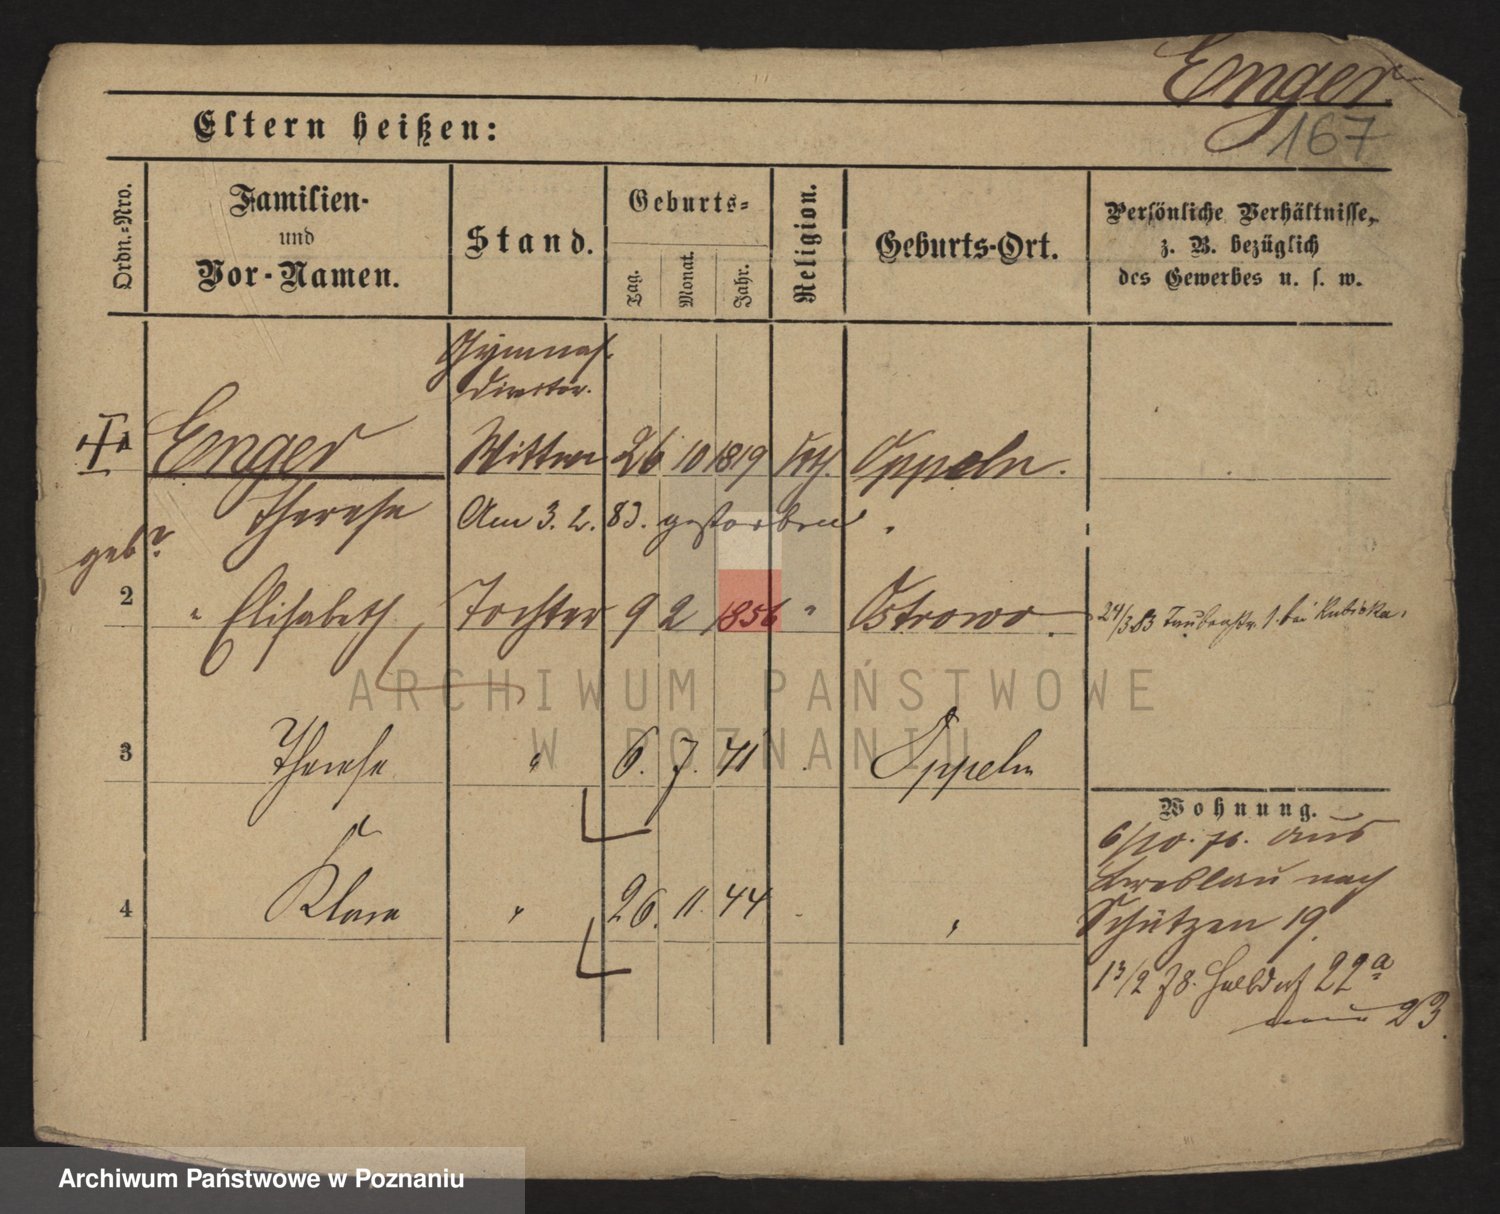 Enger
167
Eltern heißen:
Ordn.-Nro.
Familien-
und
Vor-Namen.
Stand.
Geburts-
Tag.
Monat.
Jahr.
Religion.
Geburts-Ort.
Persönliche Verhältnisse,
z. B. bezüglich
des Gewerbes u. s. w.
Gymnas.
Director.
1 Enger Wittwe 26 10 1819 kth. Oppeln.
Therese Am 3. 2. 83. gestorben.
geb?
2 " Elisabeth Tochter 9 2 1856 " Ostrowo. 24/3 83 Taubenstr. 1. bei
ARCHIWUM PAŃSTWOWE
W POZNANIU
3 Therese " 6. 7. 41 Oppeln
Wohnung.
6/10. 76. aus
Breslau nach
4 Klara " 26. 11. 44 "
Schützen 19.
13/2 78. Halbdorf 22a
23.
Archiwum Państwowe w Poznaniu